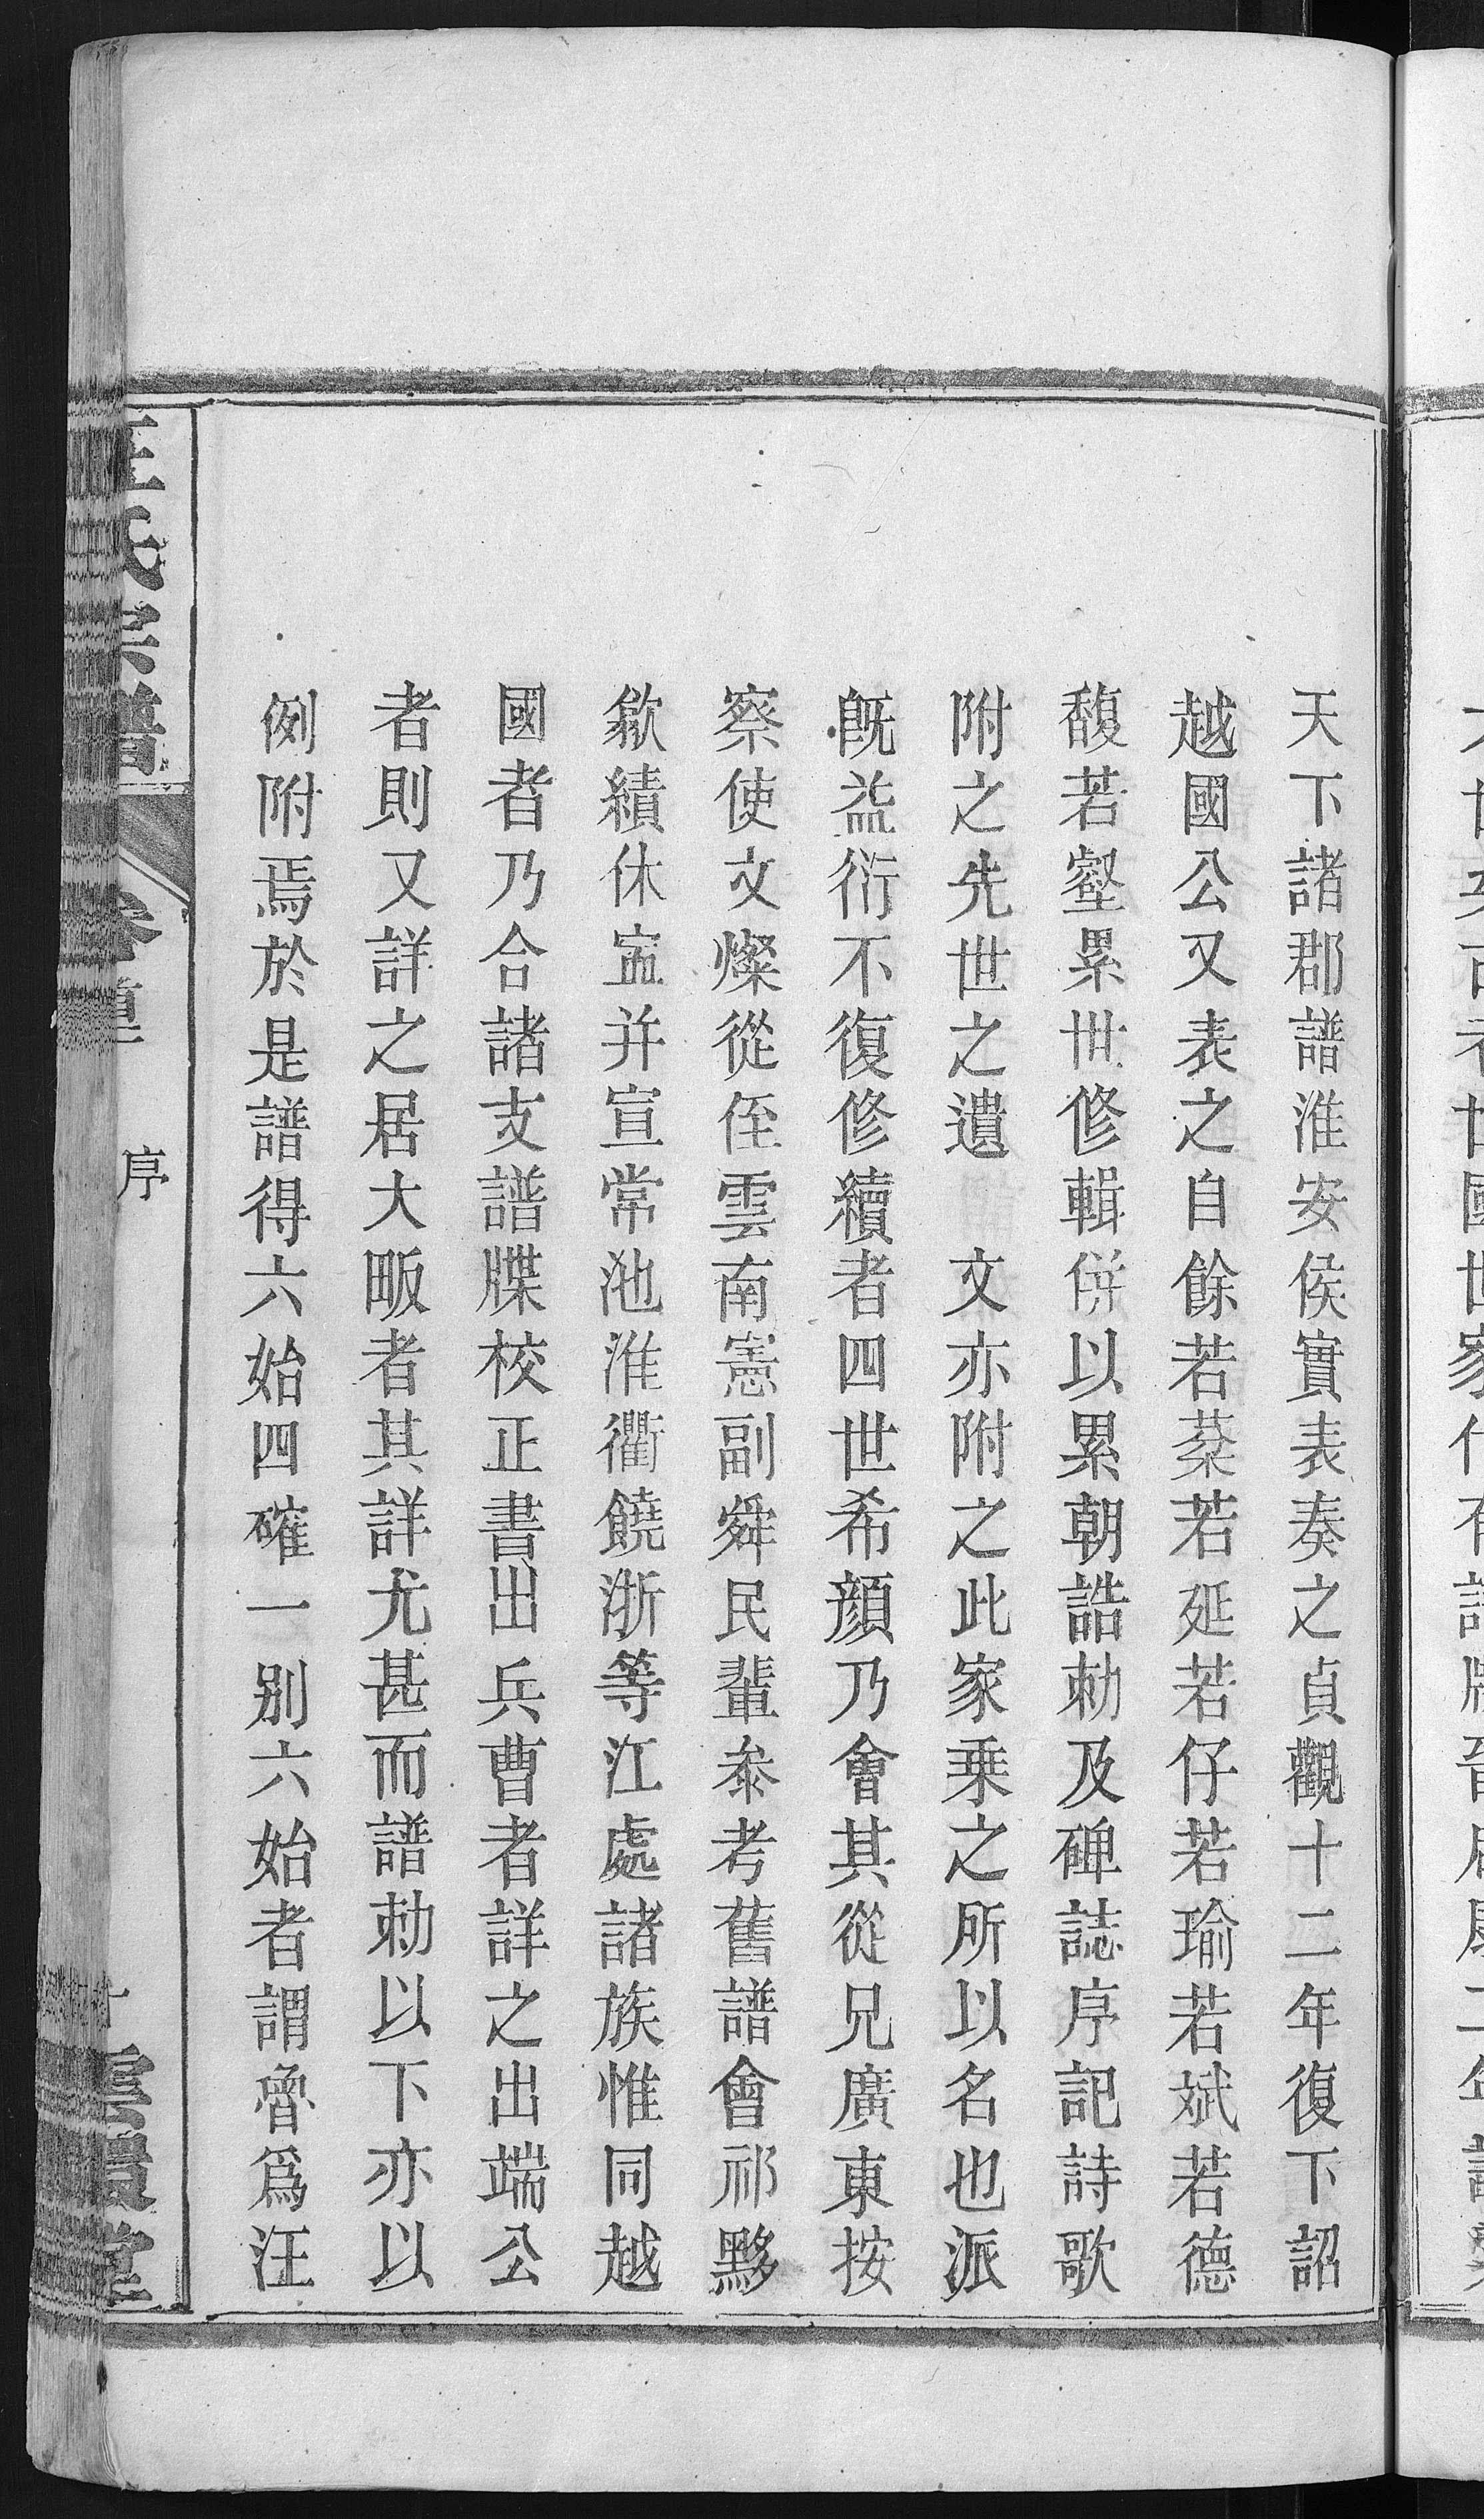 天下諸郡譜淮安侯實表奏之貞觀十二年復下詔
越國公又表之自餘若蒶若延若仔若瑜若斌若德
馥若壑累世修輯併以累朝誥勅及碑誌序記詩歌
附之先世之遺　文亦附之此家乗之所以名也派
旣益衍不復修續者四世希顔乃會其從兄廣東按
察使文燦從侄雲南憲副舜民輩叅考舊譜會祁黟
歙績休寍并宣常池淮衢饒浙等江處諸族惟同越
國者乃合諸支譜牒校正書出兵曹者詳之出端公
者則又詳之居大畈者其詳尤甚而譜勅以下亦以
例附焉於是譜得六始四確一别六始者謂魯爲汪
汪氏宗譜
卷
序